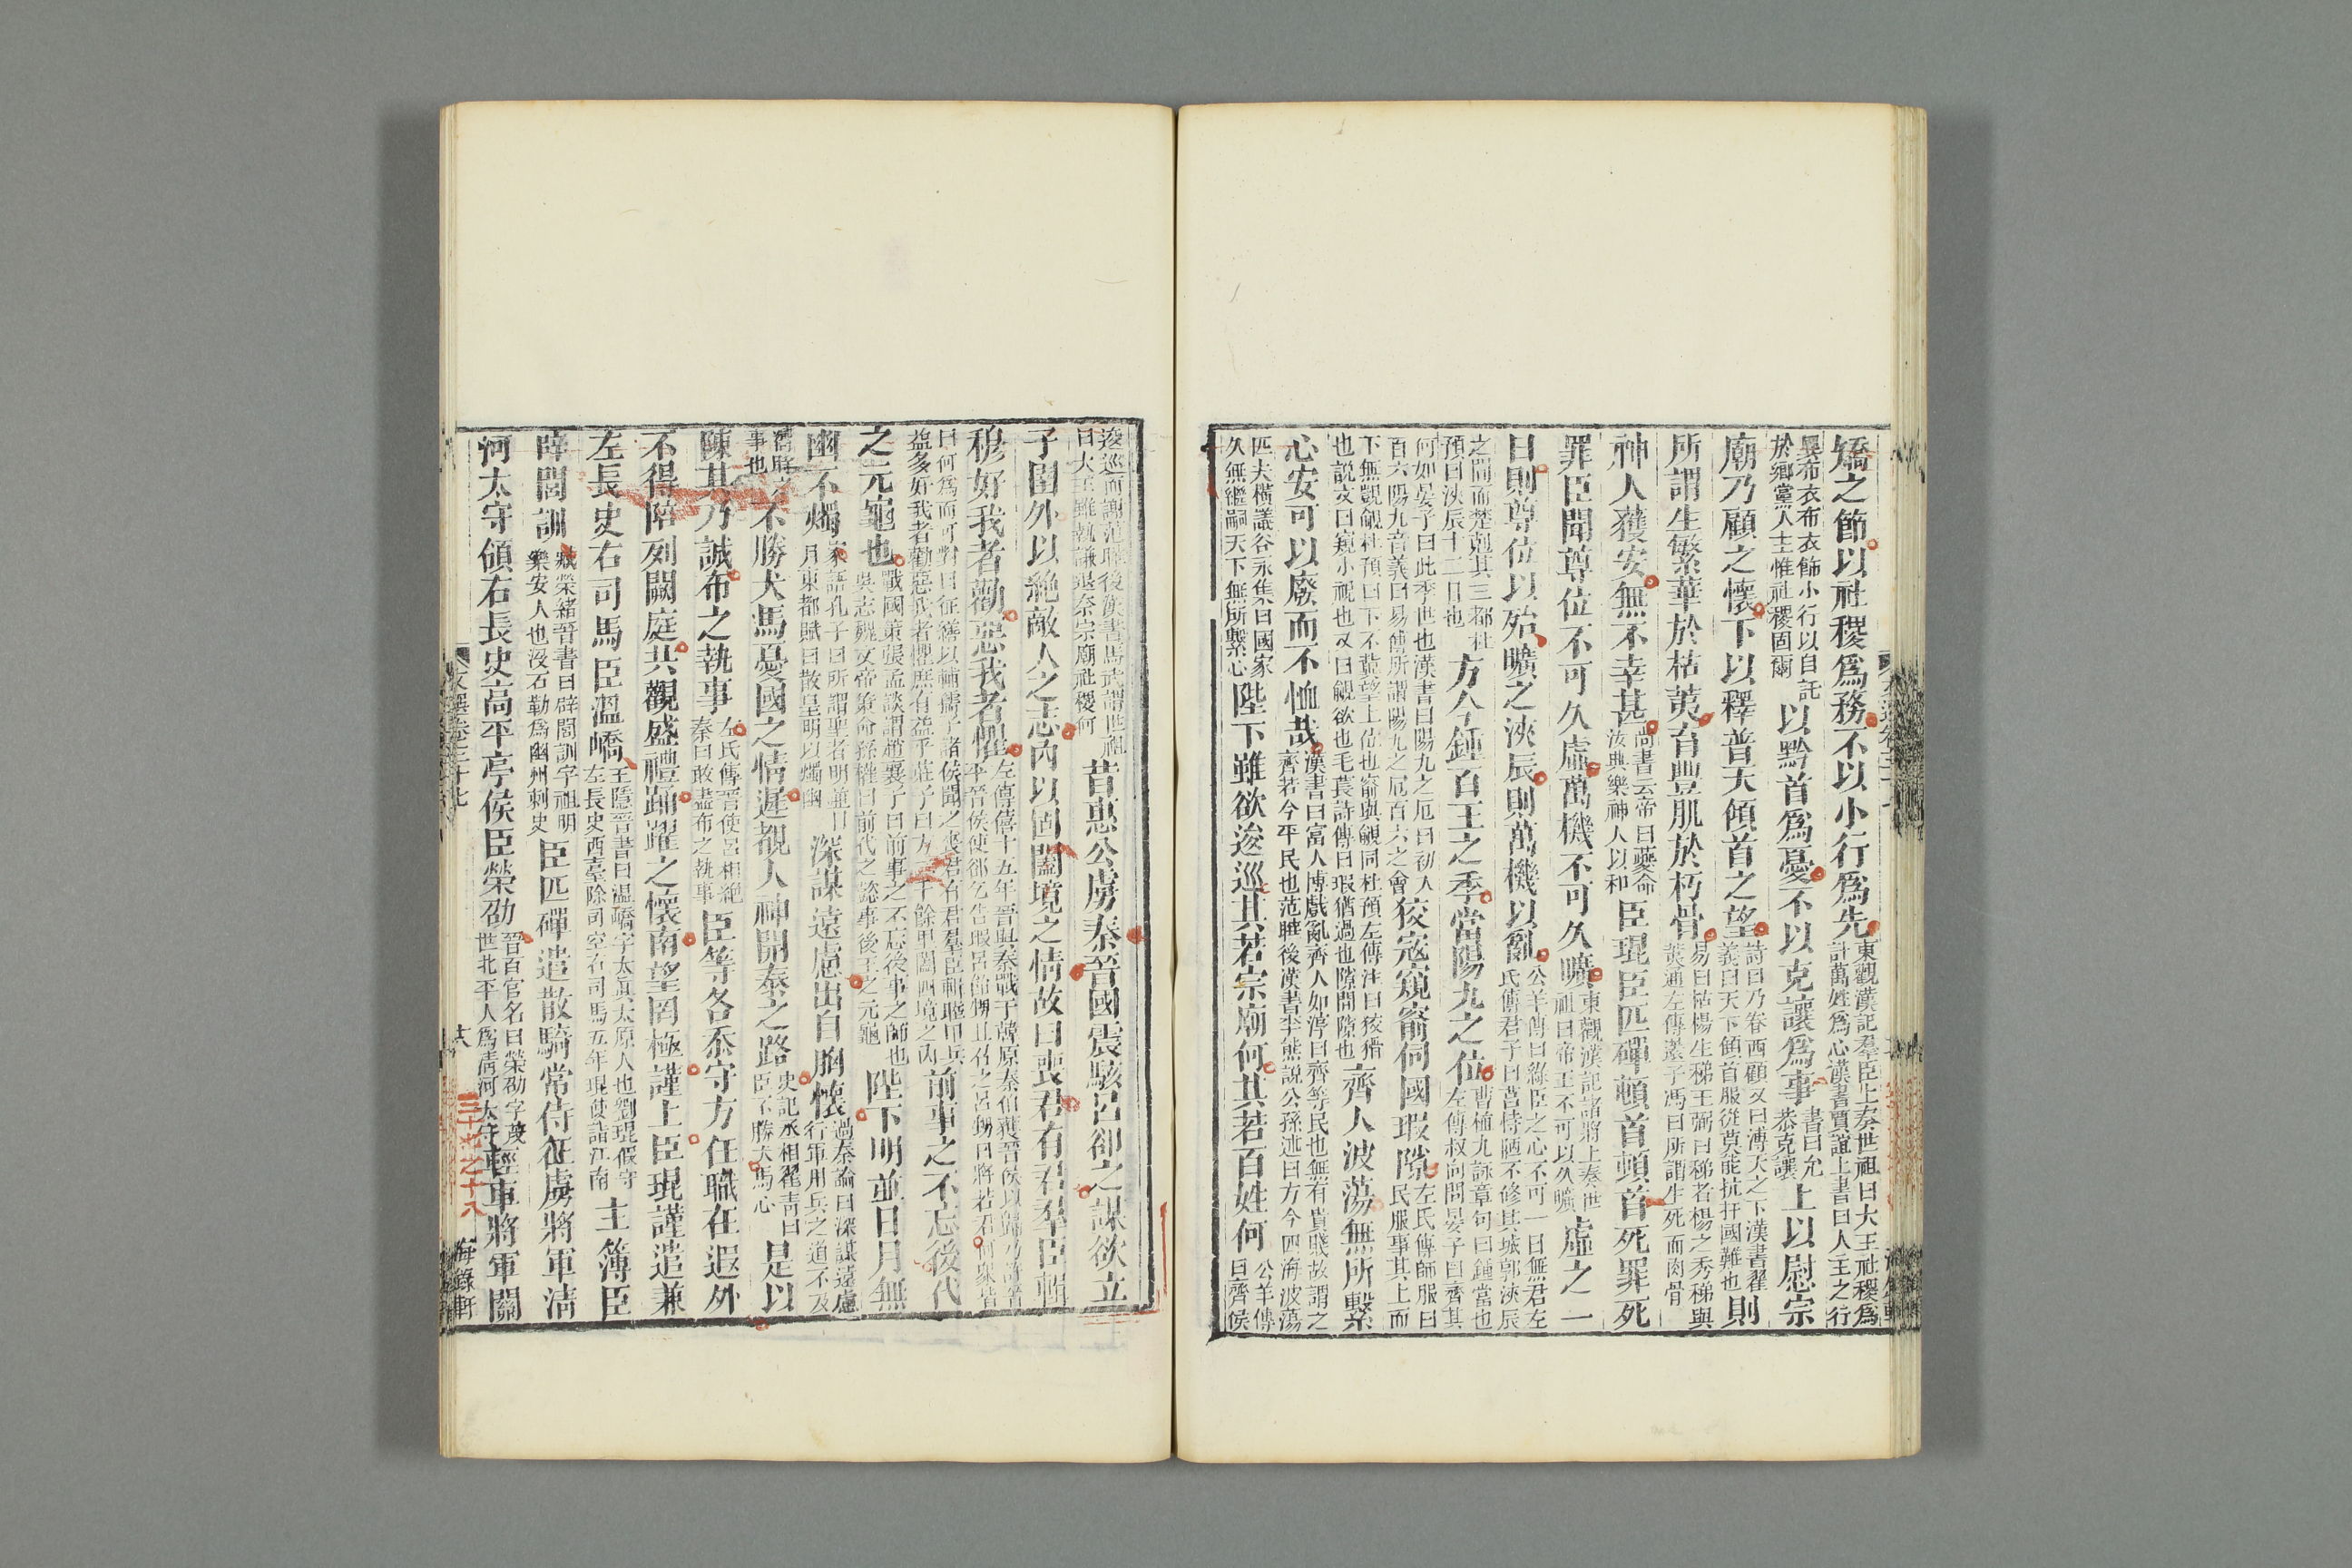 矯之節以社稷爲務不以小行爲先東觀漢記羣臣上奏世祖曰大王社稷爲計萬姓爲心漢書賈誼上書曰人主之行
異布衣布衣飾小行以自託於鄉黨人主惟社稷固爾以黔首爲憂不以克讓爲事書曰允恭克讓上以慰宗
廟乃顧之懷下以釋普天傾首之望詩曰乃眷西顧又曰溥天之下漢書翟義曰天下傾首服從莫能抗扞國難也則
所謂生繁華於枯荑育豐肌於朽骨易曰枯楊生稊王弼曰稊者楊之秀稊與荑通左傳薳子馮曰所謂生死而肉骨
神人獲安無不幸甚尚書云帝曰夔命汝典樂神人以和臣琨臣匹磾頓首頓首死罪死
罪臣聞尊位不可久虛萬機不可久曠東觀漢記諸將上奏世祖曰帝王不可以久曠虛之一
日則尊位以殆曠之浹辰則萬機以亂公羊傳曰緣臣之心不可一日無君左氏傳君子曰莒恃陋不修其城郭浹辰
之間而楚剋其三都杜預曰浹辰十二日也方今鍾百王之季當陽九之位曹植九詠章句曰鍾當也左傳叔向問晏子曰齊其
何如晏子曰此季世也漢書曰陽九之厄曰初入百六陽九音義曰易傳所謂陽九之厄百六之會狡寇窺窬伺國瑕隙左氏傳師服曰民服事其上而
下無覬覦杜預曰下不冀望上位也窬與覦同杜預左傳注曰狡猾也說文曰窺小視也又曰覦欲也毛萇詩傳曰瑕猶過也隙間隙也齊人波蕩無所繫
心安可以廢而不恤哉漢書曰富人博戲亂齊人如淳曰齊等民也無有貴賤故謂之齊若今平民也范曄後漢書李熊說公孫述曰方今四海波蕩
匹夫橫議谷永集曰國家久無繼嗣天下無所繫心陛下雖欲逡巡其若宗廟何其若百姓何公羊傳曰齊侯
逡巡而謝范曄後漢書馬武謂世祖曰大王雖執謙退奈宗廟社稷何昔惠公虜秦晉國震駭呂卻之謀欲立
子圉外以絶敵人之志內以固闔境之情故曰喪君有君羣臣輯
穆好我者勸惡我者懼左傳僖十五年晉與秦戰于韓原秦伯獲晉侯以歸乃許晉平晉侯使郤乞告瑕呂飴甥且召之呂甥曰將若君何衆皆
曰何爲而可對曰征繕以輔孺子諸侯聞之喪君有君羣臣輯睦甲兵益多好我者勸惡我者懼庶有益乎莊子曰方二千餘里闔四境之內前事之不忘後代
之元龜也戰國策張孟談謂趙襄子曰前事之不忘後事之師也吳志魏文帝策命孫權曰前代之懿事後王之元龜陛下明並日月無
幽不燭家語孔子曰所謂聖者明並日月東都賦曰散皇明以燭幽深謀遠慮出自胸懷過秦論曰深謀遠慮行軍用兵之道不及
事也不勝犬馬憂國之情遲覩人神開泰之路史記丞相翟青曰臣不勝犬馬心是以
陳其乃誠布之執事左氏傳晉使呂相絶秦曰敢盡布之執事臣等各忝守方任職在遐外
不得陪列闕庭共觀盛禮踊躍之懷南望罔極謹上臣琨謹遣兼
左長史右司馬臣溫嶠王隱晉書曰溫嶠字太眞太原人也劉琨假守左長史西臺除司空右司馬五年琨使詣江南主簿臣
辟閭訓臧榮緒晉書曰辟閭訓字祖明樂安人也沒石勒爲幽州刺史臣匹磾遣散騎常侍征虜將軍清
河太守領右長史高平亭侯臣榮劭晉百官名曰榮劭字茂世北平人爲清河太守輕車將軍關
文選卷三十七
六
三十七之十八
海錄軒